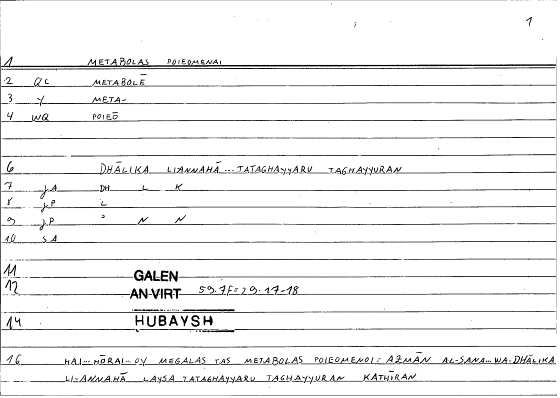 1
1 METABOLAS POIEOMENAI
2 QL METABOLĒ
3 Y META-
4 WQ POIEŌ
6 DHĀLIKA LIANNAHĀ... TATAGHAYYARU TAGHAYYURAN
7 JA DH L K
8 JP L
9 JP ʾ N N
10 SA
11 GALEN
12 AN VIRT 59.7F=29.17-18
14 HUBAYSH
16 HAI... HŌRAI... OY MEGALAS TAS METABOLAS POIEOMENOI: AZMĀN AL-SANA... WA-DHĀLIKA
LI-ANNAHĀ LAYSA TATAGHAYYARU TAGHAYYURAN KATHĪRAN